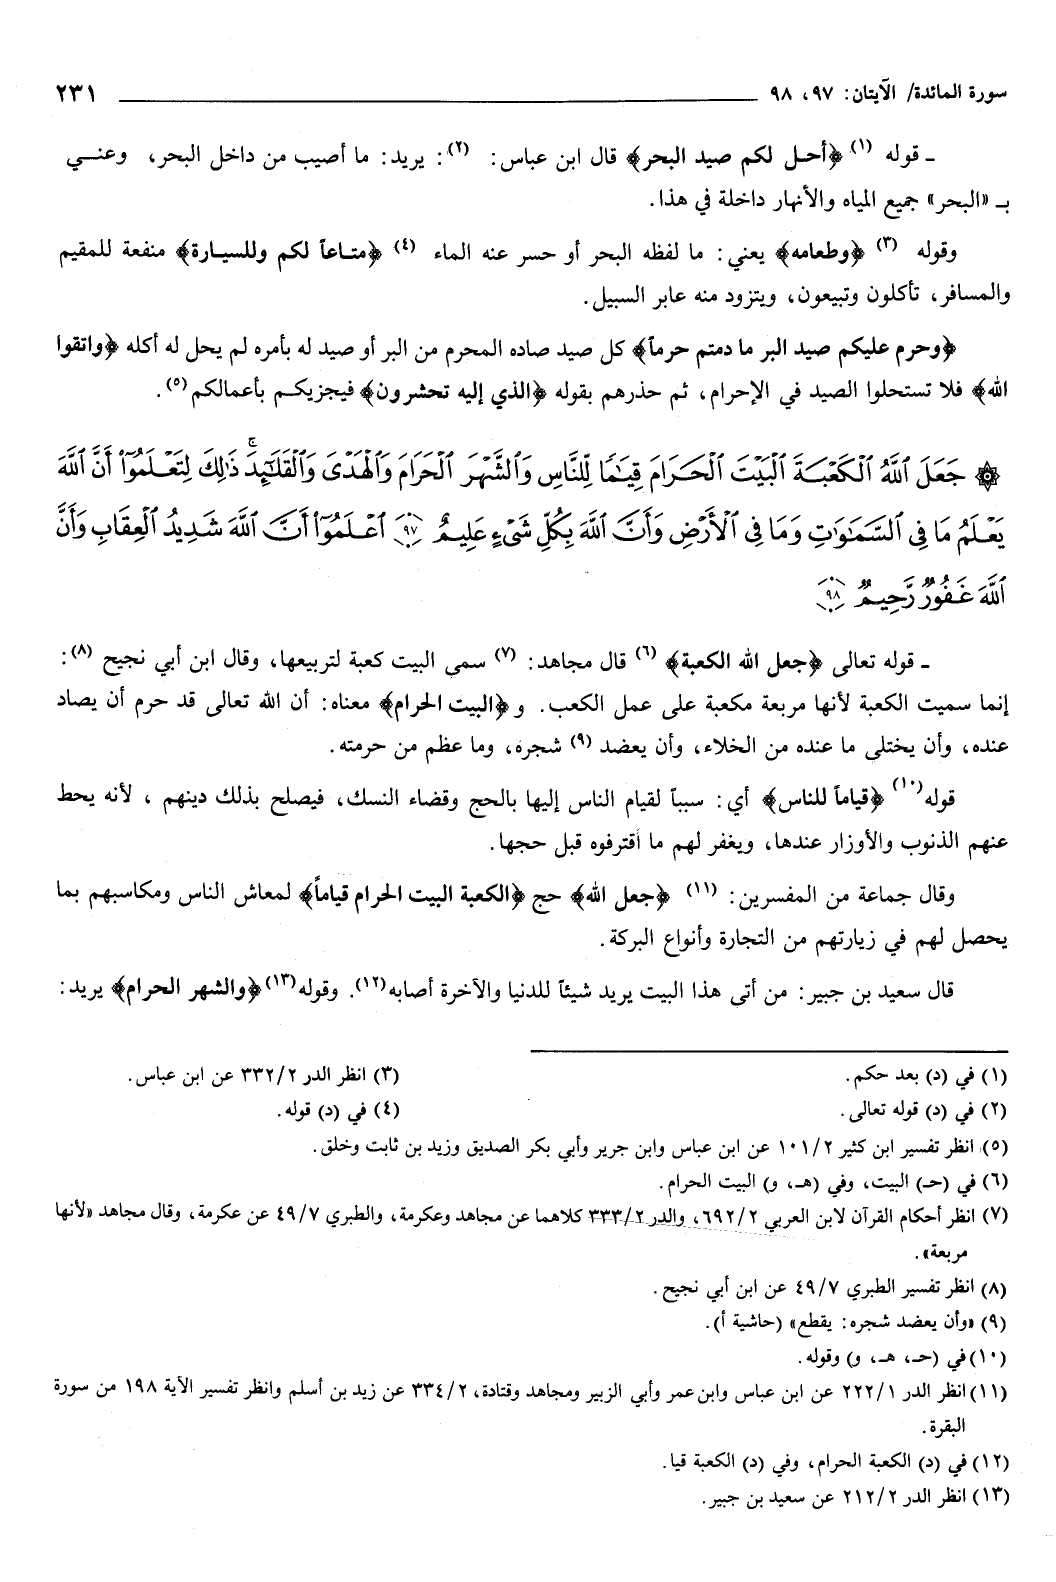 سورة المائدة/ الآيتان: ٩٧، ٩٨ ٢٣١
ـ قوله (١) ﴿أحل لكم صيد البحر﴾ قال ابن عباس: (٢): يريد: ما أصيب من داخل البحر، وعني
بـ «البحر» جميع المياه والأنهار داخلة في هذا.
وقوله (٣) ﴿وطعامه﴾ يعني: ما لفظه البحر أو حسر عنه الماء (٤) ﴿متاعاً لكم وللسيارة﴾ منفعة للمقيم
والمسافر، تأكلون وتبيعون، ويتزود منه عابر السبيل.
﴿وحرم عليكم صيد البر ما دمتم حرماً﴾ كل صيد صاده المحرم من البر أو صيد له بأمره لم يحل له أكله ﴿واتقوا
الله﴾ فلا تستحلوا الصيد في الإحرام، ثم حذرهم بقوله ﴿الذي إليه تحشرون﴾ فيجزيكم بأعمالكم(٥).
۞ جَعَلَ ٱللَّهُ ٱلْكَعْبَةَ ٱلْبَيْتَ ٱلْحَرَامَ قِيَٰمًا لِّلنَّاسِ وَٱلشَّهْرَ ٱلْحَرَامَ وَٱلْهَدْىَ وَٱلْقَلَٰٓئِدَ ۚ ذَٰلِكَ لِتَعْلَمُوٓا۟ أَنَّ ٱللَّهَ
يَعْلَمُ مَا فِى ٱلسَّمَٰوَٰتِ وَمَا فِى ٱلْأَرْضِ وَأَنَّ ٱللَّهَ بِكُلِّ شَىْءٍ عَلِيمٌ ٩٧ ٱعْلَمُوٓا۟ أَنَّ ٱللَّهَ شَدِيدُ ٱلْعِقَابِ وَأَنَّ
ٱللَّهَ غَفُورٌ رَّحِيمٌ ٩٨
ـ قوله تعالى ﴿جعل الله الكعبة﴾ (٦) قال مجاهد: (٧) سمى البيت كعبة لتربيعها، وقال ابن أبي نجيح (٨):
إنما سميت الكعبة لأنها مربعة مكعبة على عمل الكعب. و﴿البيت الحرام﴾ معناه: أن الله تعالى قد حرم أن يصاد
عنده، وأن يختلى ما عنده من الخلاء، وأن يعضد (٩) شجره، وما عظم من حرمته.
قوله(١٠) ﴿قياماً للناس﴾ أي: سبباً لقيام الناس إليها بالحج وقضاء النسك، فيصلح بذلك دينهم ، لأنه يحط
عنهم الذنوب والأوزار عندها، ويغفر لهم ما اقترفوه قبل حجها.
وقال جماعة من المفسرين: (١١) ﴿جعل الله﴾ حج ﴿الكعبة البيت الحرام قياماً﴾ لمعاش الناس ومكاسبهم بما
يحصل لهم في زيارتهم من التجارة وأنواع البركة.
قال سعيد بن جبير: من أتى هذا البيت يريد شيئاً للدنيا والآخرة أصابه(١٢). وقوله(١٣)﴿والشهر الحرام﴾ يريد:
(١) في (د) بعد حكم.
(٢) في (د) قوله تعالى.
(٣) انظر الدر ٣٣٢/٢ عن ابن عباس.
(٤) في (د) قوله.
(٥) انظر تفسير ابن كثير ١٠١/٢ عن ابن عباس وابن جرير وأبي بكر الصديق وزيد بن ثابت وخلق.
(٦) في (حـ) البيت، وفي (هـ، و) البيت الحرام.
(٧) انظر أحكام القرآن لابن العربي ٦٩٢/٢، والدر ٣٣٣/٢ كلاهما عن مجاهد وعكرمة، والطبري ٤٩/٧ عن عكرمة، وقال مجاهد «لأنها
مربعة».
(٨) انظر تفسير الطبري ٤٩/٧ عن ابن أبي نجيح.
(٩) «وأن يعضد شجره: يقطع» (حاشية أ).
(١٠) في (حـ، هـ، و) وقوله.
(١١) انظر الدر ٢٢٢/١ عن ابن عباس وابن عمر وأبي الزبير ومجاهد وقتادة، ٣٣٤/٢ عن زيد بن أسلم وانظر تفسير الآية ١٩٨ من سورة
البقرة.
(١٢) في (د) الكعبة الحرام، وفي (د) الكعبة قيا.
(١٣) انظر الدر ٢١٢/٢ عن سعيد بن جبير.